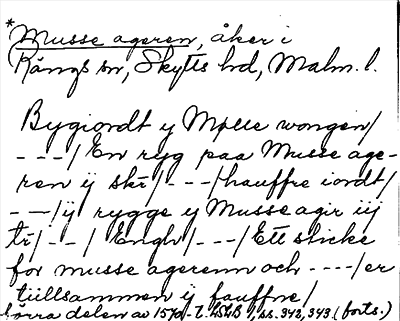 *Musse ageren, åker i
Rängs sn, Skytts hd, Malm. l.
Bygiordt y Mølle wongen/
---/ En ryg paa Musse age-
ren ij skr/---/hauffre iordt/
---/ij rygge y Musse agir iij
tr/--/ Engh/---/Ett sticke
for musse agerenn och ----/er
tiillsammen ij fauffne/
förra delen av 1570-t. LSLB, ss. 342, 343 (forts.)